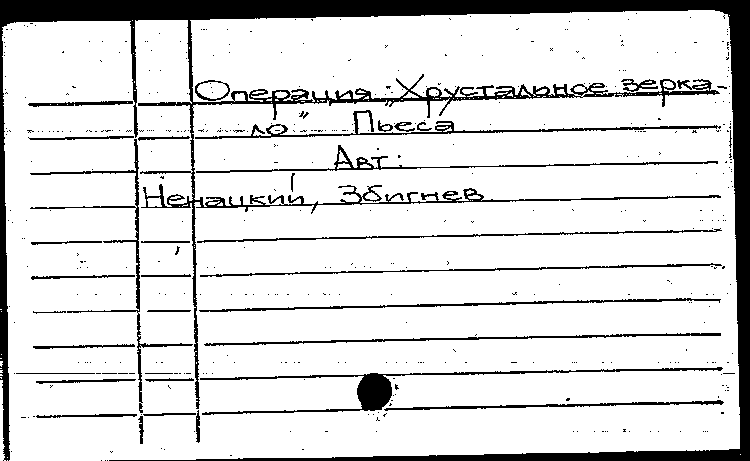 Операция „Хрустальное зерка-
ло" Пьеса
Авт:
Ненацкий, Збигнев